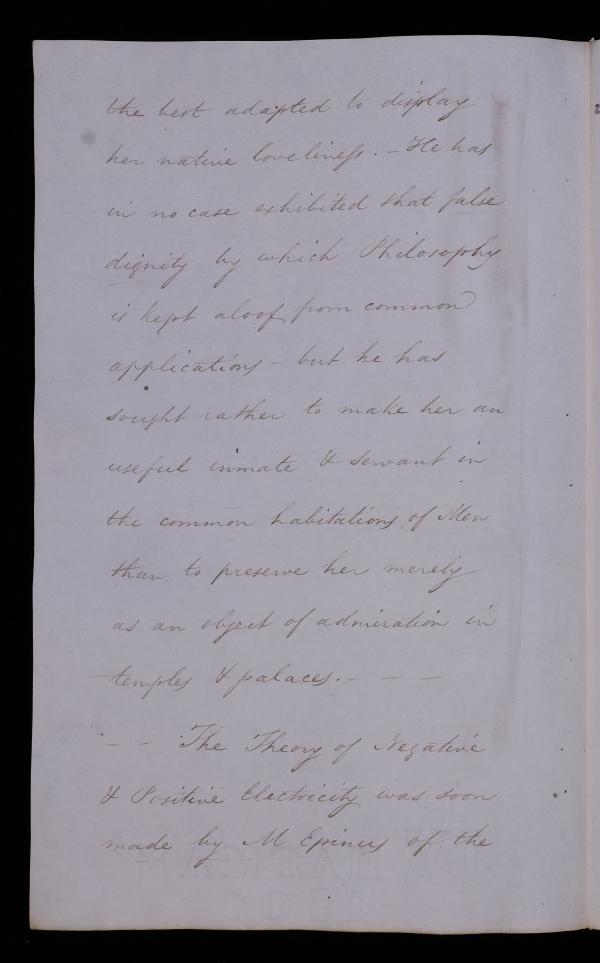 the best adapted to display
her native loveliness. – He has
in no case exhibited that false
dignity by which Philosophy
is kept aloof from common
applications – but he has
sought rather to make her an
useful inmate & servant in
the common habitations of Men
than to preserve her merely
as an object of admiration in
temples & palaces. – – –
– – The Theory of Negative
& Positive Electricity was soon
made by M Epinus of the